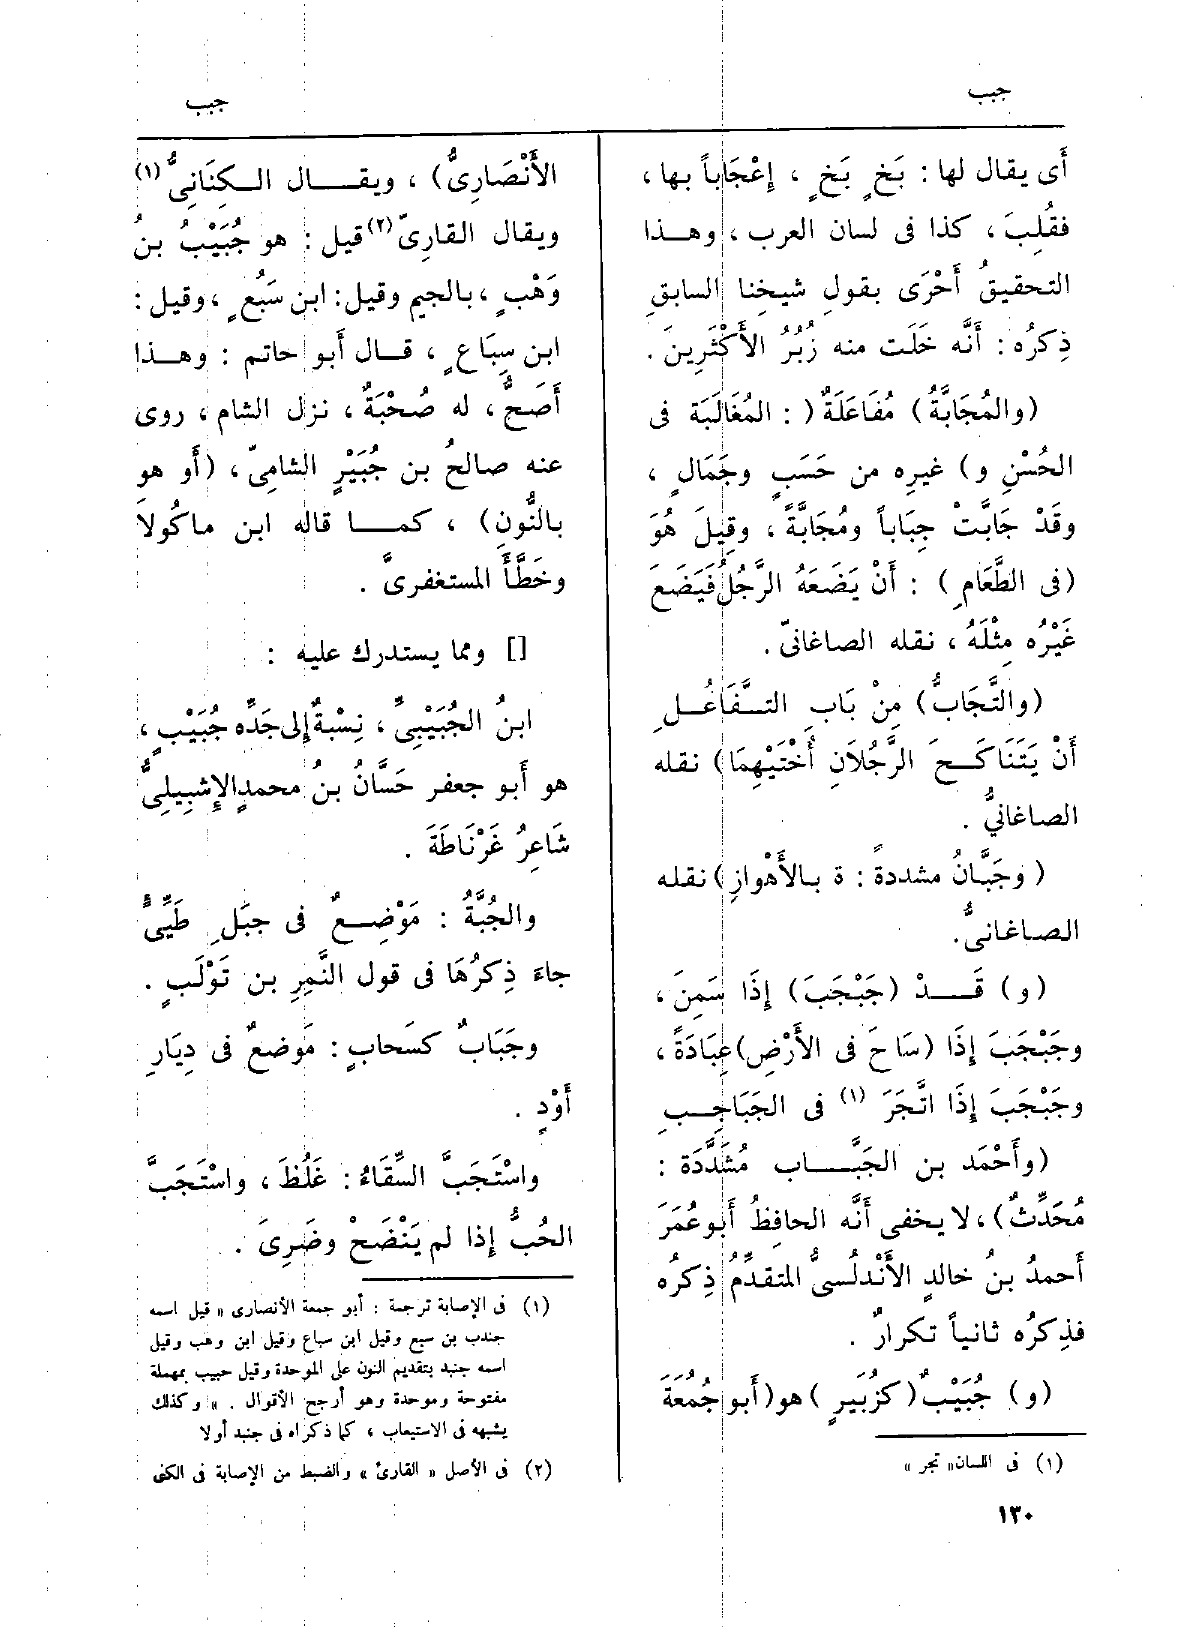 جبب
جبب
أَى يقال لها : بَخٍ بَخٍ ، إِعْجَاباً بها ،
فقُلِبَ ، كذا فى لسان العرب ، وهــذا
التحقيقُ أَحْرَى بقولِ شيخِنا السابقِ
ذِكرُه : أَنَّه خَلَت منه زُبُرُ الأَكْثَرِينَ .
(والمُجَابَّةُ) مُفَاعَلَةٌ ( : المُغَالَبَة فى
الحُسْنِ و) غيرِه من حَسَبٍ وجَمَالٍ ،
وقَدْ جَابَّتْ جِبَاباً ومُجَابَّةً ، وقِيلَ هُوَ
(فى الطَّعَامِ ) : أَنْ يَضَعَهُ الرَّجُلُ فَيَضَعَ
غَيْرُه مِثْلَهُ ، نقله الصاغانىّ .
(والتَّجَابُّ) مِنْ بَابِ التــفَاعُــلِ
أَنْ يَتَنَاكَــحَ الرَّجُلاَنِ أُخْتَيْهِمَا) نقله
الصاغانىُّ .
( وجَبَّانُ مشددةً : ة بالأَهْوازِ) نقله
الصاغانىُّ.
(و) قَــــدْ (جَبْجَبَ) إِذَا سَمِنَ ،
وجَبْجَبَ إِذَا (سَاحَ فى الأَرْضِ) عِبَادَةً ،
وجَبْجَبَ إِذَا اتَّجَرَ (١) فى الجَبَاجِــبِ
(وأَحْمَد بن الجَبَّــاب مُشَدَّدَة :
مُحَدِّثٌ) ، لا يخفى أَنَّه الحافظُ أَبو عُمَرَ
أَحمدُ بنُ خالدٍ الأَنْدلُسىُّ المتقدِّمُ ذِكرُه
فذِكرُه ثانياً تكرارٌ .
(و) جُبَيْبٌ (كزُبَيرٍ ) هو (أَبو جُمُعَةَ
(١) فى اللسان « تجر »
١٣٠
الأَنْصَارِىُّ) ، ويقــال الــكِنَانِىُّ (١)
ويقال القارِىّ (٢) قيل : هو جُبَيْبُ بنُ
وَهْبٍ ، بالجيم وقيل : ابن سَبُعٍ ، وقيل :
ابن سِبَاعٍ ، قــال أَبو حاتم : وهــذا
أَصَحُّ ، له صُحْبَةٌ ، نزل الشام ، روى
عنه صالحُ بن جُبَيْرٍ الشامِىّ ، (أَو هو
بالنُّونِ) ، كمــا قاله ابن ماكُولاَ
وخَطَّأَ المستغفرىَّ .
[] ومما يستدرك عليه :
ابنُ الجُبَيْبِىِّ ، نِسْبَةٌ إِلى جَدِّه جُبَيْبٍ ،
هو أَبو جعفر حَسَّانُ بنُ محمدٍ الإِشبِيلِىُّ
شَاعِرُ غَرْنَاطَةَ .
والجُبَّةُ : مَوْضِــعٌ فى جبَلِ طَيِّئٍّ
جاءَ ذِكرُهَا فى قول النَّمِرِ بن تَوْلَبٍ .
وجَبَابٌ كسَحابٍ : مَوضعٌ فى دِيَارِ
أَوْدٍ .
واسْتَجَبَّ السِّقَاءُ : غَلُظَ ، واسْتَجَبَّ
الحُبُّ إِذا لم يَنْضَحْ وضَرِىَ .
(١) فى الإصابة ترجمة : أبو جمعة الأنصارى « قيل اسمه
جندب بن سبع وقيل ابن سباع وقيل ابن وهب وقيل
اسمه جنبد بتقديم النون على الموحدة وقيل حبيب بمهملة
مفتوحة وموحدة وهو أرجح الأقوال . » وكذلك
يشبهه فى الاستيعاب ، كما ذكراه فى جنبد أولا
(٢) فى الأصل « القارئ » والضبط من الإصابة فى الكنى